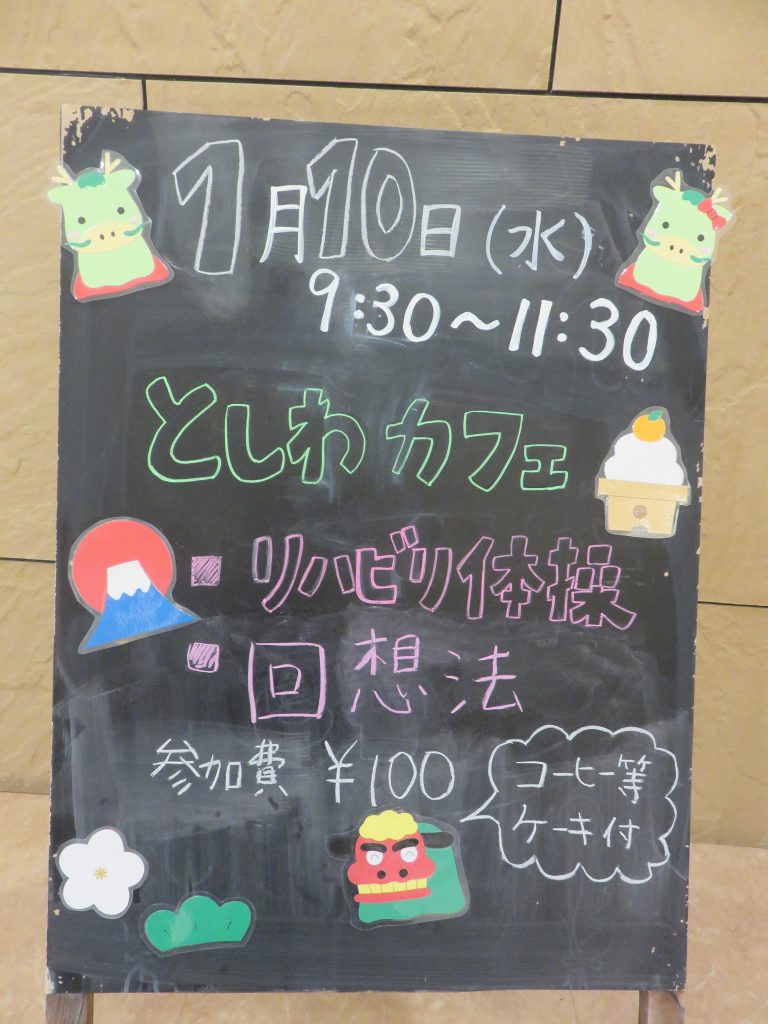 1月10日(水)
9:30～11:30
としわカフェ
■ リハビリ体操
■ 回想法
参加費 ¥100
コーヒー等
ケーキ付